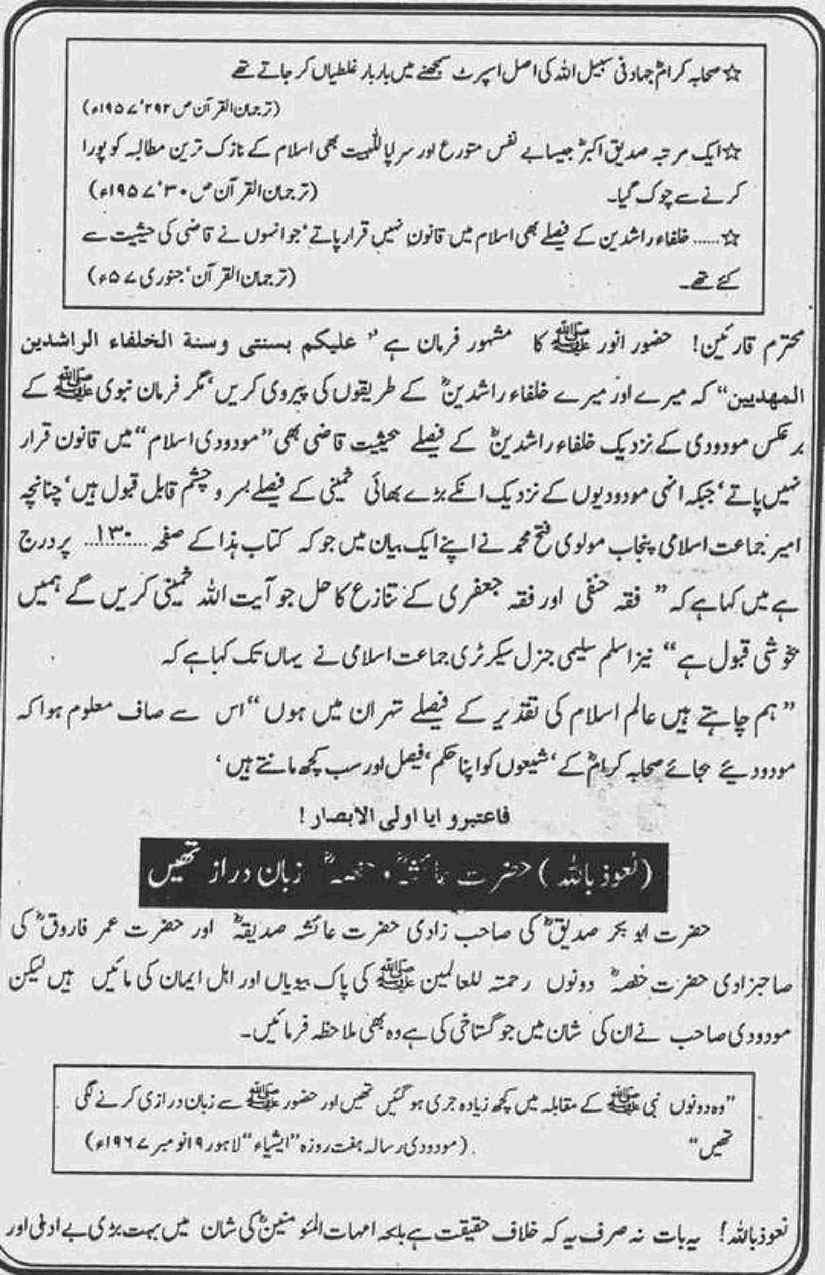 ☆ صحابہ کرامؓ جہاد فی سبیل اللہ کی اصل اسپرٹ سمجھنے میں بار بار غلطیاں کر جاتے تھے
(ترجمان القرآن ص ۲۹۲’ ۱۹۵۷ء)
☆ ایک مرتبہ صدیق اکبرؓ جیسا بے نفس متورع اور سراپا للٰہیت بھی اسلام کے نازک ترین مطالبہ کو پورا
کرنے سے چوک گیا۔ (ترجمان القرآن ص ۳۰’ ۱۹۵۷ء)
☆ ...... خلفاء راشدین کے فیصلے بھی اسلام میں قانون نہیں قرار پاتے’ جو انہوں نے قاضی کی حیثیت سے
کئے تھے۔ (ترجمان القرآن’ جنوری ۵۷ء)
محترم قارئین! حضور انور ﷺ کا مشہور فرمان ہے ”علیکم بسنتی وسنة الخلفاء الراشدین
المهدیین“ کہ میرے اور میرے خلفاء راشدینؓ کے طریقوں کی پیروی کریں’ مگر فرمان نبوی ﷺ کے
برعکس مودودی کے نزدیک خلفاء راشدینؓ کے فیصلے بحیثیت قاضی بھی ”مودودی اسلام“ میں قانون قرار
نہیں پاتے’ جبکہ انہی مودودیوں کے نزدیک انکے بڑے بھائی خمینی کے فیصلے بسر و چشم قابل قبول ہیں’ چنانچہ
امیر جماعت اسلامی پنجاب مولوی فتح محمد نے اپنے ایک بیان میں جو کہ کتاب ہذا کے صفحہ ...۱۳۰... پر درج
ہے میں کہا ہے کہ ” فقہ حنفی اور فقہ جعفری کے تنازع کا حل جو آیت اللہ خمینی کریں گے ہمیں
خوشی قبول ہے“ نیز اسلم سلیمی جنرل سیکرٹری جماعت اسلامی نے یہاں تک کہا ہے کہ
” ہم چاہتے ہیں عالم اسلام کی تقدیر کے فیصلے تہران میں ہوں“ اس سے صاف معلوم ہوا کہ
مودودیئے بجائے صحابہ کرامؓ کے’ شیعوں کو اپنا حکم’ فیصل اور سب کچھ مانتے ہیں’
فاعتبرو ایا اولی الابصار!
(نعوذ باللہ) حضرت عائشہؓ، حفصہؓ زبان دراز تھیں
حضرت ابو بکر صدیقؓ کی صاحب زادی حضرت عائشہ صدیقہؓ اور حضرت عمر فاروقؓ کی
صاحبزادی حضرت حفصہؓ دونوں رحمتہ للعالمین ﷺ کی پاک بیویاں اور اہل ایمان کی مائیں ہیں لیکن
مودودی صاحب نے ان کی شان میں جو گستاخی کی ہے وہ بھی ملاحظہ فرمائیں۔
”وہ دونوں نبی ﷺ کے مقابلہ میں کچھ زیادہ جری ہو گئیں تھیں اور حضور ﷺ سے زبان درازی کرنے لگی
تھیں“ (مودودی رسالہ ہفت روزہ ”ایشیاء“ لاہور ۱۹ نومبر ۱۹۶۷ء)
نعوذ باللہ! یہ بات نہ صرف یہ کہ خلاف حقیقت ہے بلکہ امہات المؤمنینؓ کی شان میں بہت بڑی بے ادبی اور